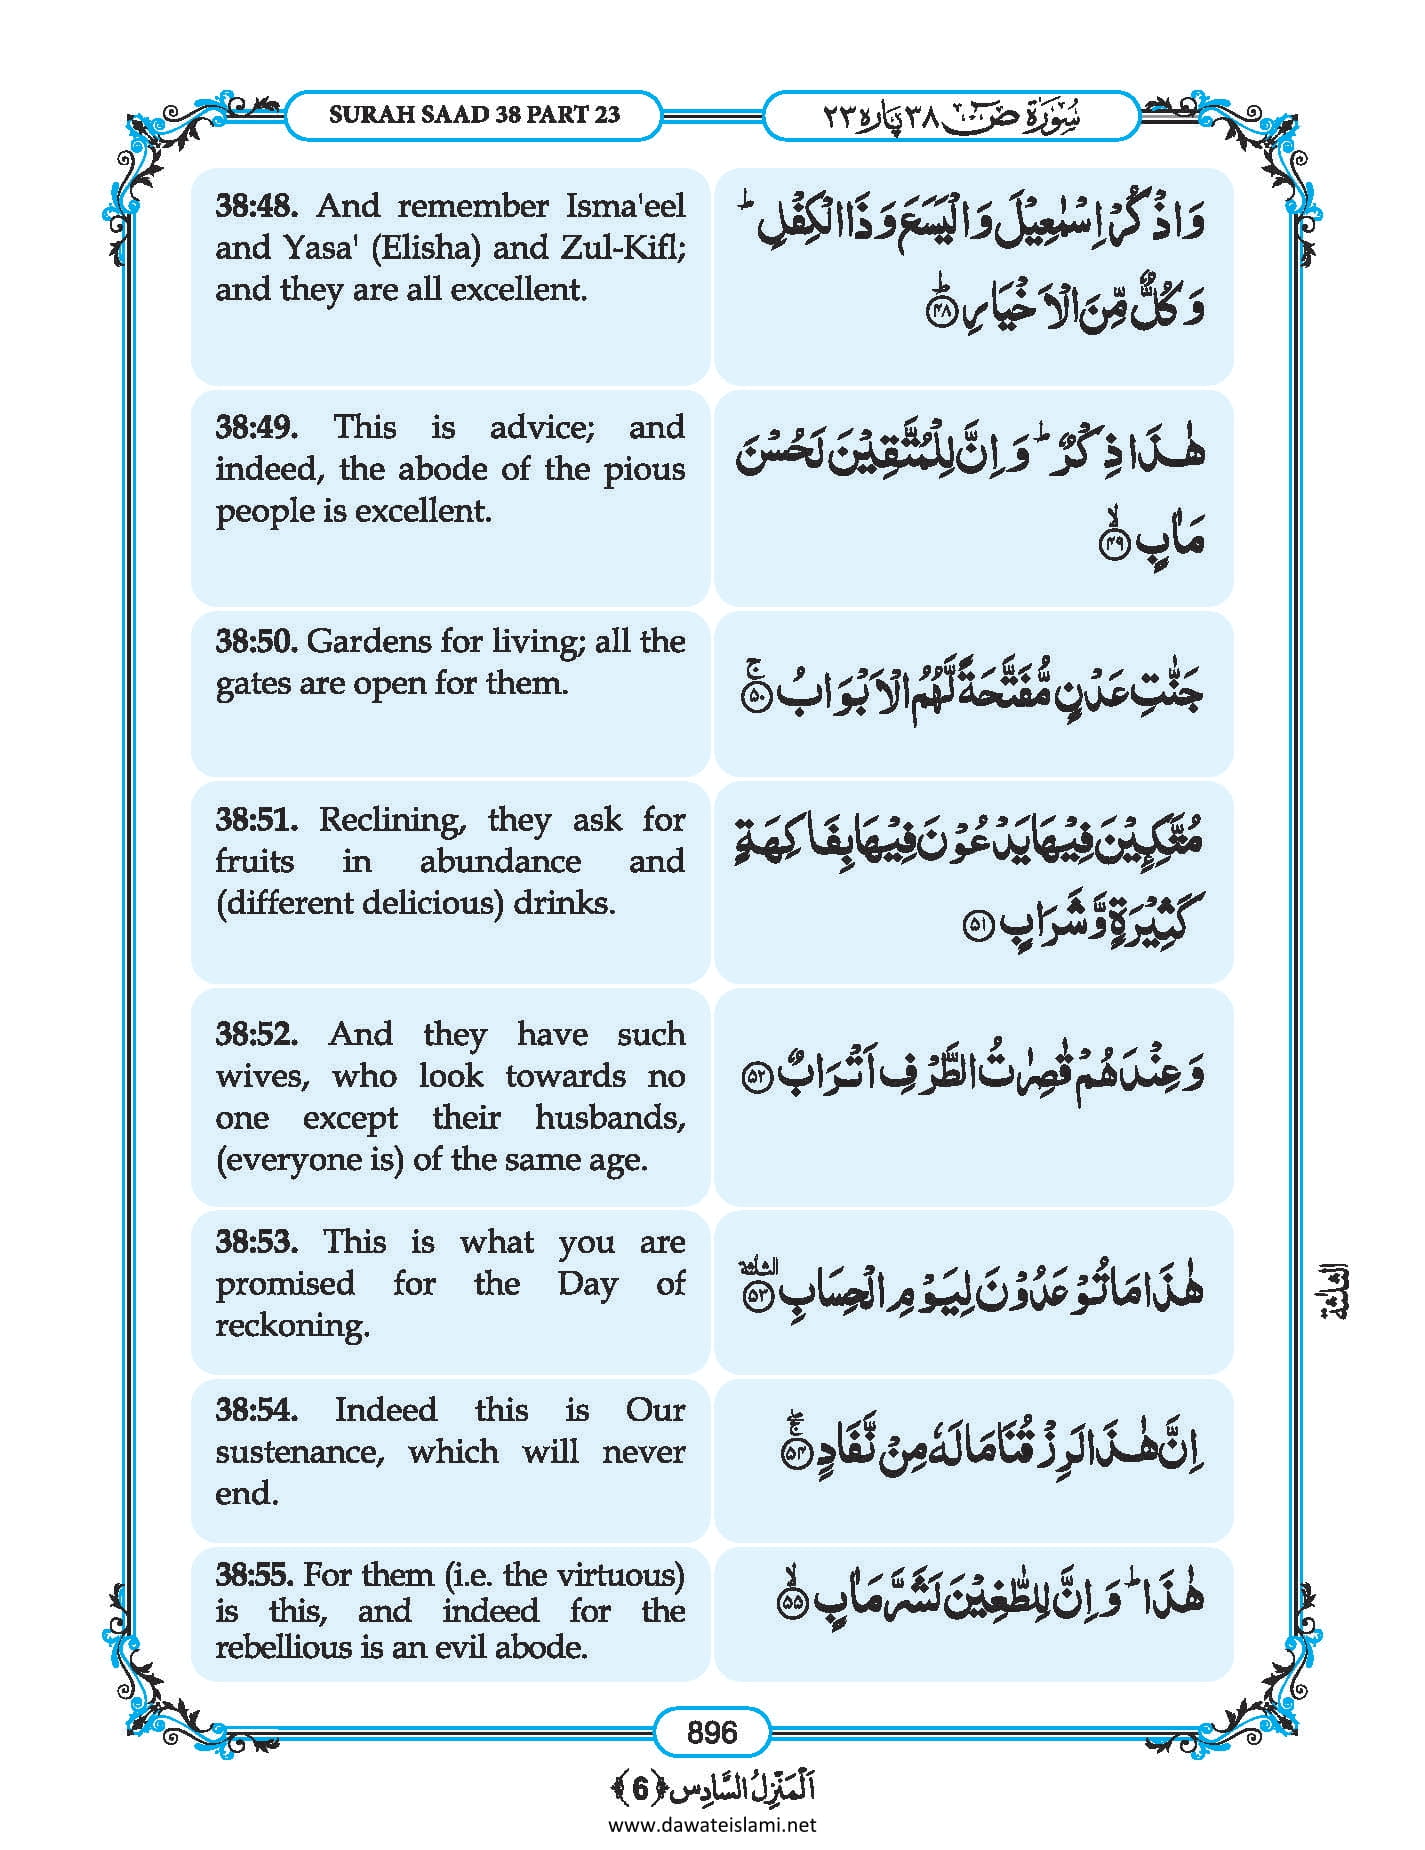 SURAH SAAD 38 PART 23
سُوْرَۃُ صٓ ۳۸ پارہ ۲۳
38:48. And remember Isma'eel
and Yasa' (Elisha) and Zul-Kifl;
and they are all excellent.
وَاذْكُرْ اِسْمٰعِیْلَ وَالْیَسَعَ وَذَا الْكِفْلِ ؕ
وَكُلٌّ مِّنَ الْاَخْیَارِ ؕ﴿۴۸﴾
38:49. This is advice; and
indeed, the abode of the pious
people is excellent.
هٰذَا ذِكْرٌ ؕ وَ اِنَّ لِلْمُتَّقِیْنَ لَحُسْنَ
مَاٰبٍ ۙ﴿۴۹﴾
38:50. Gardens for living; all the
gates are open for them.
جَنّٰتِ عَدْنٍ مُّفَتَّحَةً لَّهُمُ الْاَبْوَابُ ۚ﴿۵۰﴾
38:51. Reclining, they ask for
fruits in abundance and
(different delicious) drinks.
مُتَّكِـِٕیْنَ فِیْهَا یَدْعُوْنَ فِیْهَا بِفَاكِهَةٍ
كَثِیْرَةٍ وَّشَرَابٍ ﴿۵۱﴾
38:52. And they have such
wives, who look towards no
one except their husbands,
(everyone is) of the same age.
وَعِنْدَهُمْ قٰصِرٰتُ الطَّرْفِ اَتْرَابٌ ﴿۵۲﴾
38:53. This is what you are
promised for the Day of
reckoning.
هٰذَا مَا تُوْعَدُوْنَ لِیَوْمِ الْحِسَابِ ﴿۵۳﴾ الثلثة
الثلثة
38:54. Indeed this is Our
sustenance, which will never
end.
اِنَّ هٰذَا لَرِزْقُنَا مَا لَهٗ مِنْ نَّفَادٍ ۚۖ﴿۵۴﴾
38:55. For them (i.e. the virtuous)
is this, and indeed for the
rebellious is an evil abode.
هٰذَا ؕ وَ اِنَّ لِلطّٰغِیْنَ لَشَرَّ مَاٰبٍ ۙ﴿۵۵﴾
896
اَلْمَنْزِلُ السَّادِس ﴿6﴾
www.dawateislami.net